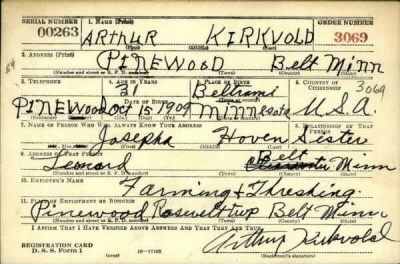 SERIAL NUMBER 1. NAME (Print) ORDER NUMBER
00263 ARTHUR KIRKVOLD 3069
2. ADDRESS (Print)
PINEWOOD Belt Minn
3. TELEPHONE 4. AGE IN YEARS 5. PLACE OF BIRTH 6. COUNTRY OF CITIZENSHIP
31 Beltrami 3069
DATE OF BIRTH
PINEWOOD Oct 15 1909 Minnesota U.S.A.
7. NAME OF PERSON WHO WILL ALWAYS KNOW YOUR ADDRESS 8. RELATIONSHIP OF THAT PERSON
Josepha Hoven Sister
9. ADDRESS OF THAT PERSON
Leonard Belt Minn
10. EMPLOYER'S NAME
Farming + Threshing
11. PLACE OF EMPLOYMENT OR BUSINESS
Pinewood Roosevelt twp Belt Minn
I AFFIRM THAT I HAVE VERIFIED ABOVE ANSWERS AND THAT THEY ARE TRUE.
REGISTRATION CARD
D. S. S. Form 1 Arthur Kirkvold
(Registrant's signature)